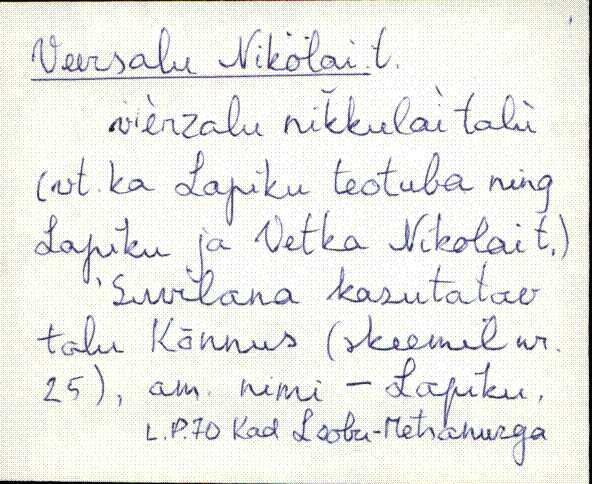 Veersalu Nikolai t.
vièrzalu nikkulai talù
(vt. ka Lapiku teotuba ning
Lapiku ja Vetka Nikolai t.)
Suvilana kasutatav
talu Kõnnus (skeemil nr.
25), am. nimi – Lapiku.
L.P.70 Kad Loobu-Metsanurga